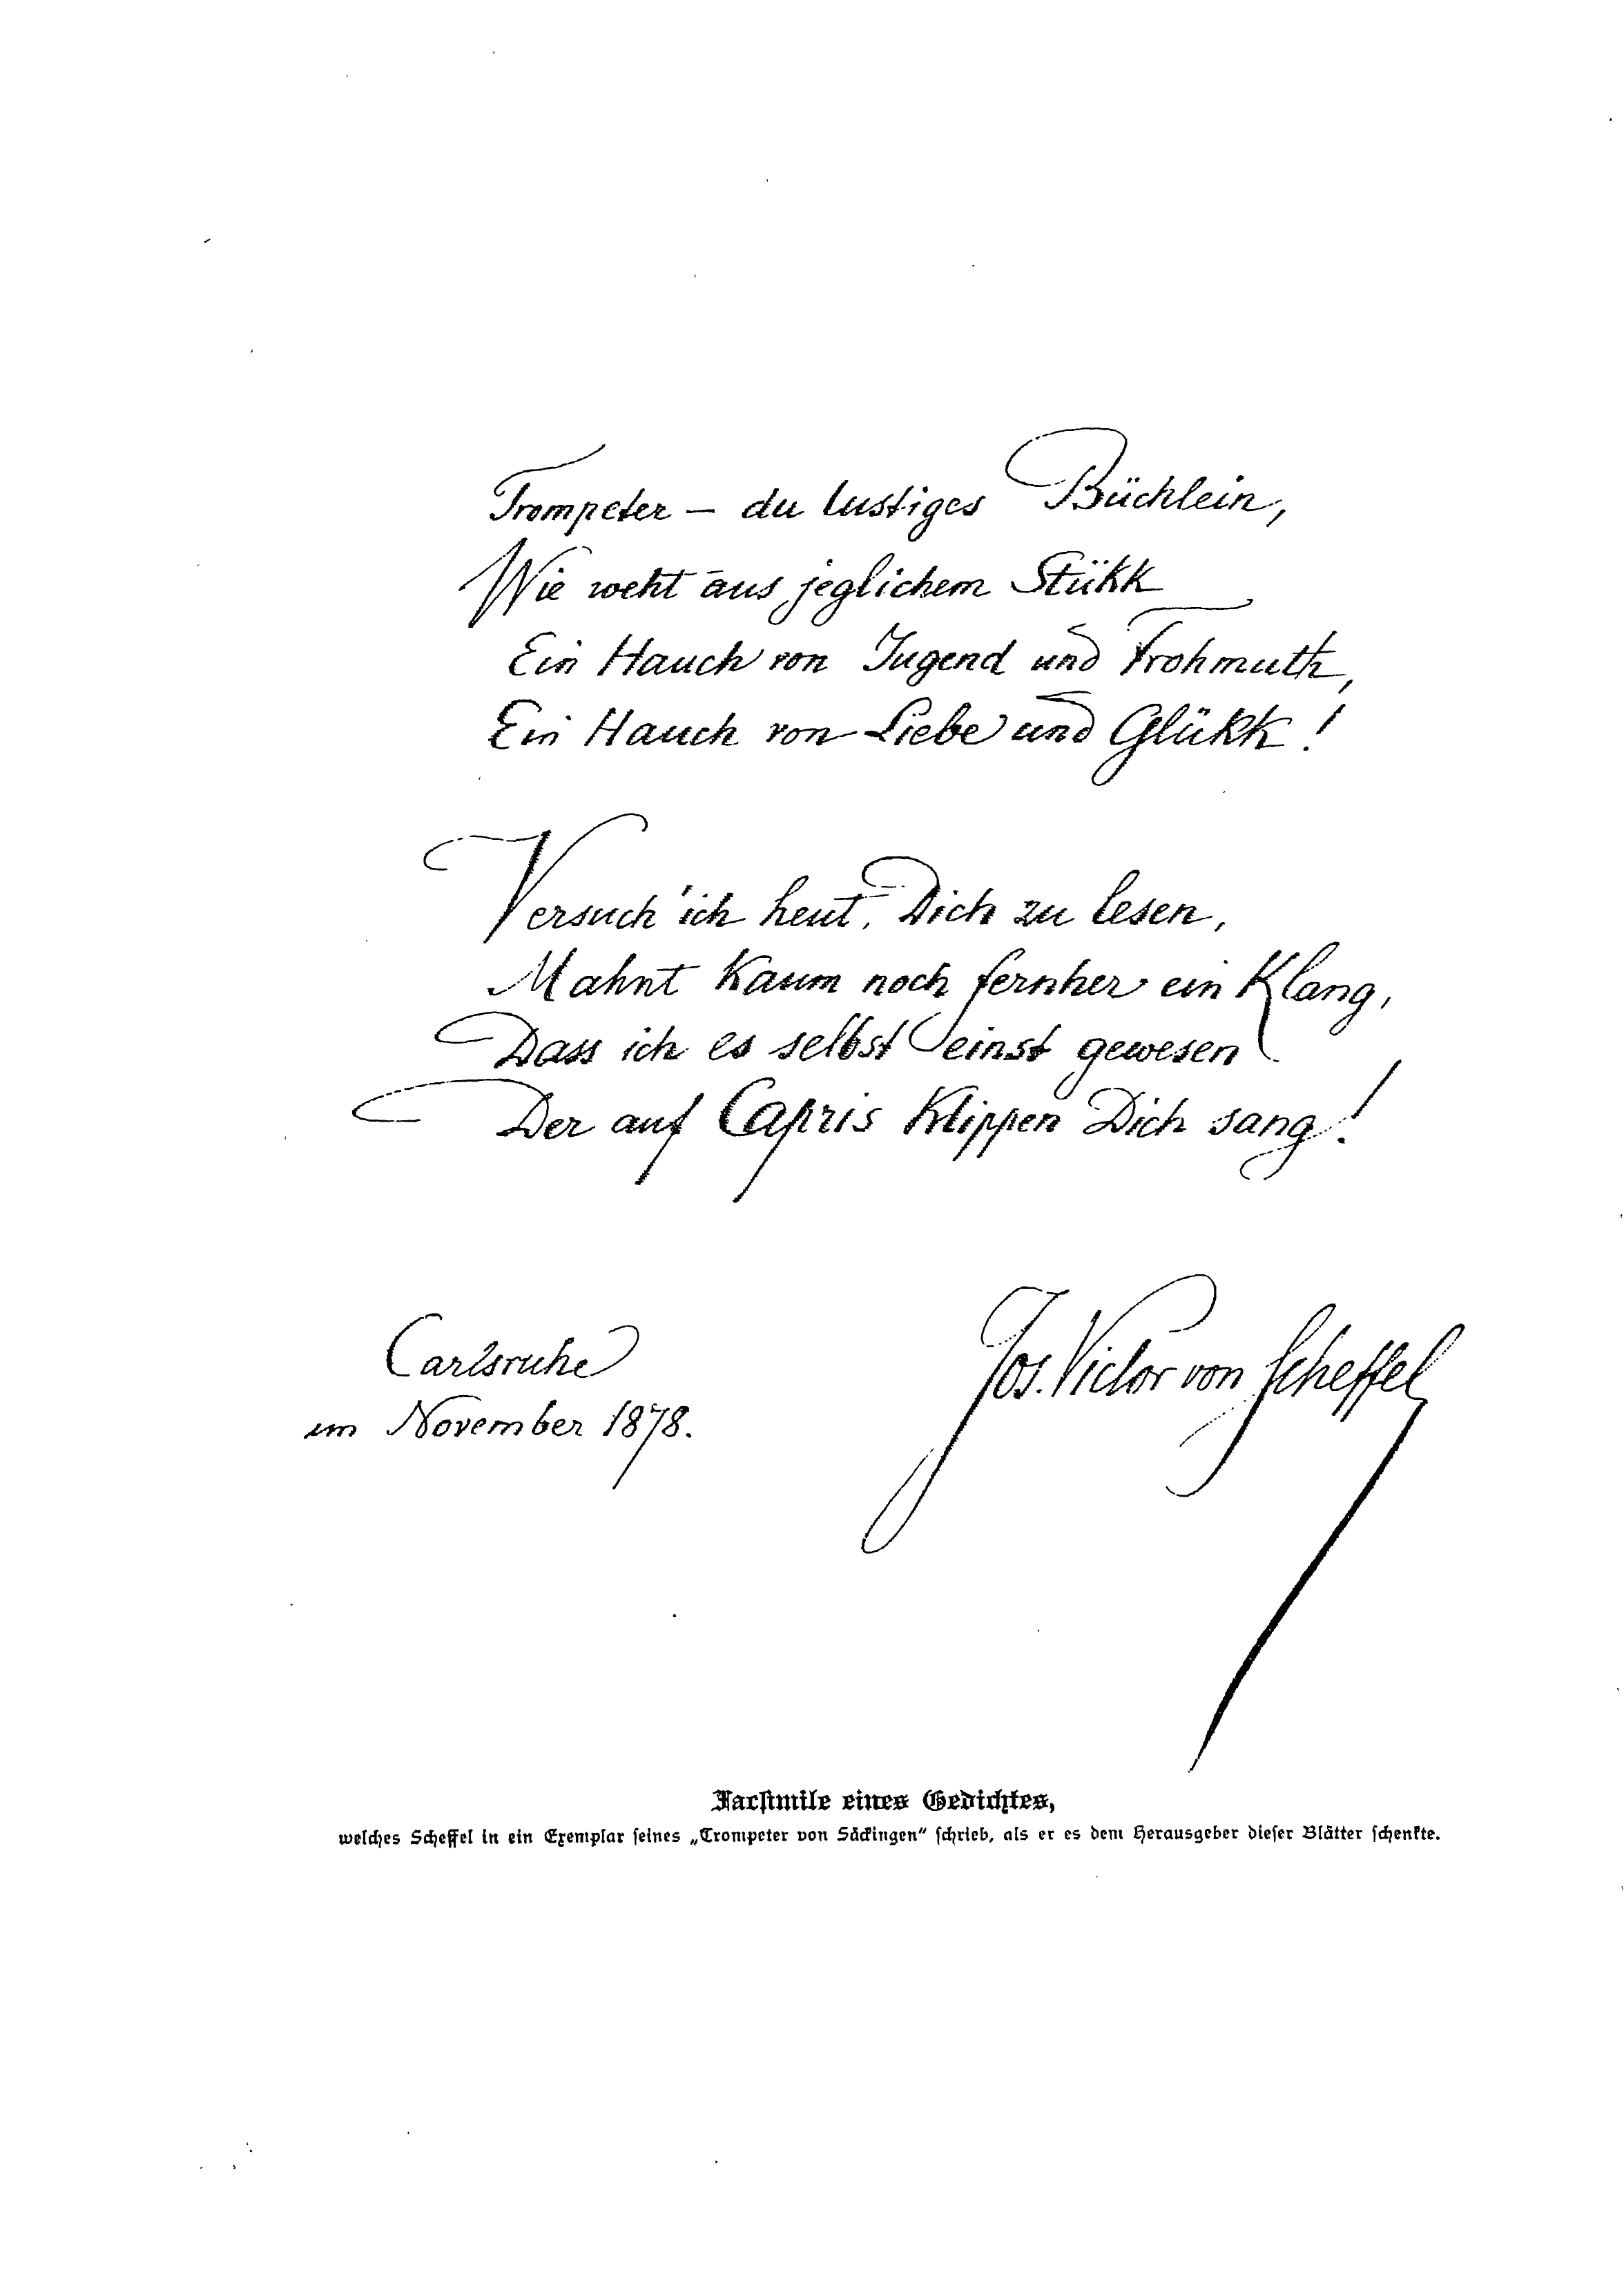 Trompeter – du lustiges Büchlein,
Wie weht aus jeglichem Stükk
Ein Hauch von Jugend und Frohmuth,
Ein Hauch von Liebe und Glükk!
Versuch' ich heut, Dich zu lesen,
Mahnt kaum noch fernher ein Klang,
Dass ich es selbst einst gewesen
Der auf Capris Klippen Dich sang!
Carlsruhe
im November 1878.
Jos. Victor von Scheffel
Facsimile eines Gedichtes,
welches Scheffel in ein Exemplar seines „Trompeter von Säckingen“ schrieb, als er es dem Herausgeber dieser Blätter schenkte.